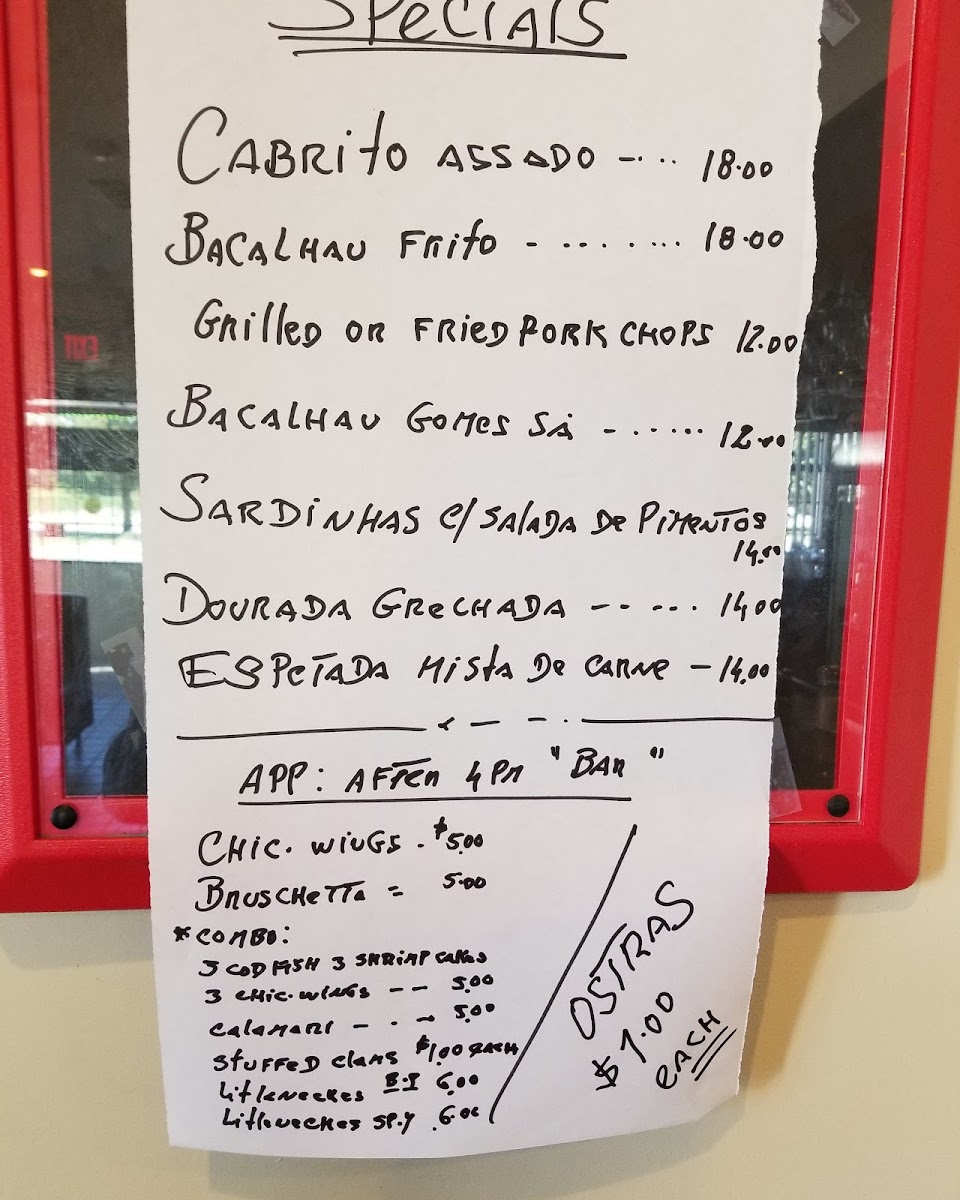 SPeCiAlS
CABRito ASSADO -··· 18.00
BACAlHAU FRito - ······· 18.00
GRillED OR FRiED PORK CHOPS 12.00
BACAlHAU GOMeS SÁ - ······ 12.00
SARDiNHAS C/ SAlADA De PiMeNTOS
14.00
DOURADA GReCHADA -- --··· 14.00
ESPeTADA MiStA De CARNe - 14.00
APP: AFTeR 4PM "BAR"
CHiC. WiNGS . $5.00
BRUSCHeTTA = 5.00
*COMBO:
3 COD FiSH 3 SHRiMP CAKeS
3 CHiC. WiNGS -- 5.00
CAlAMARi - . - 5.00
StUFFeD ClAMS $1.00 eACH
LitleNeCKeS B-I 6.00
LitleNeCKeS SP.Y .6.00
OSTRAS
$1.00
eACH
EXIT